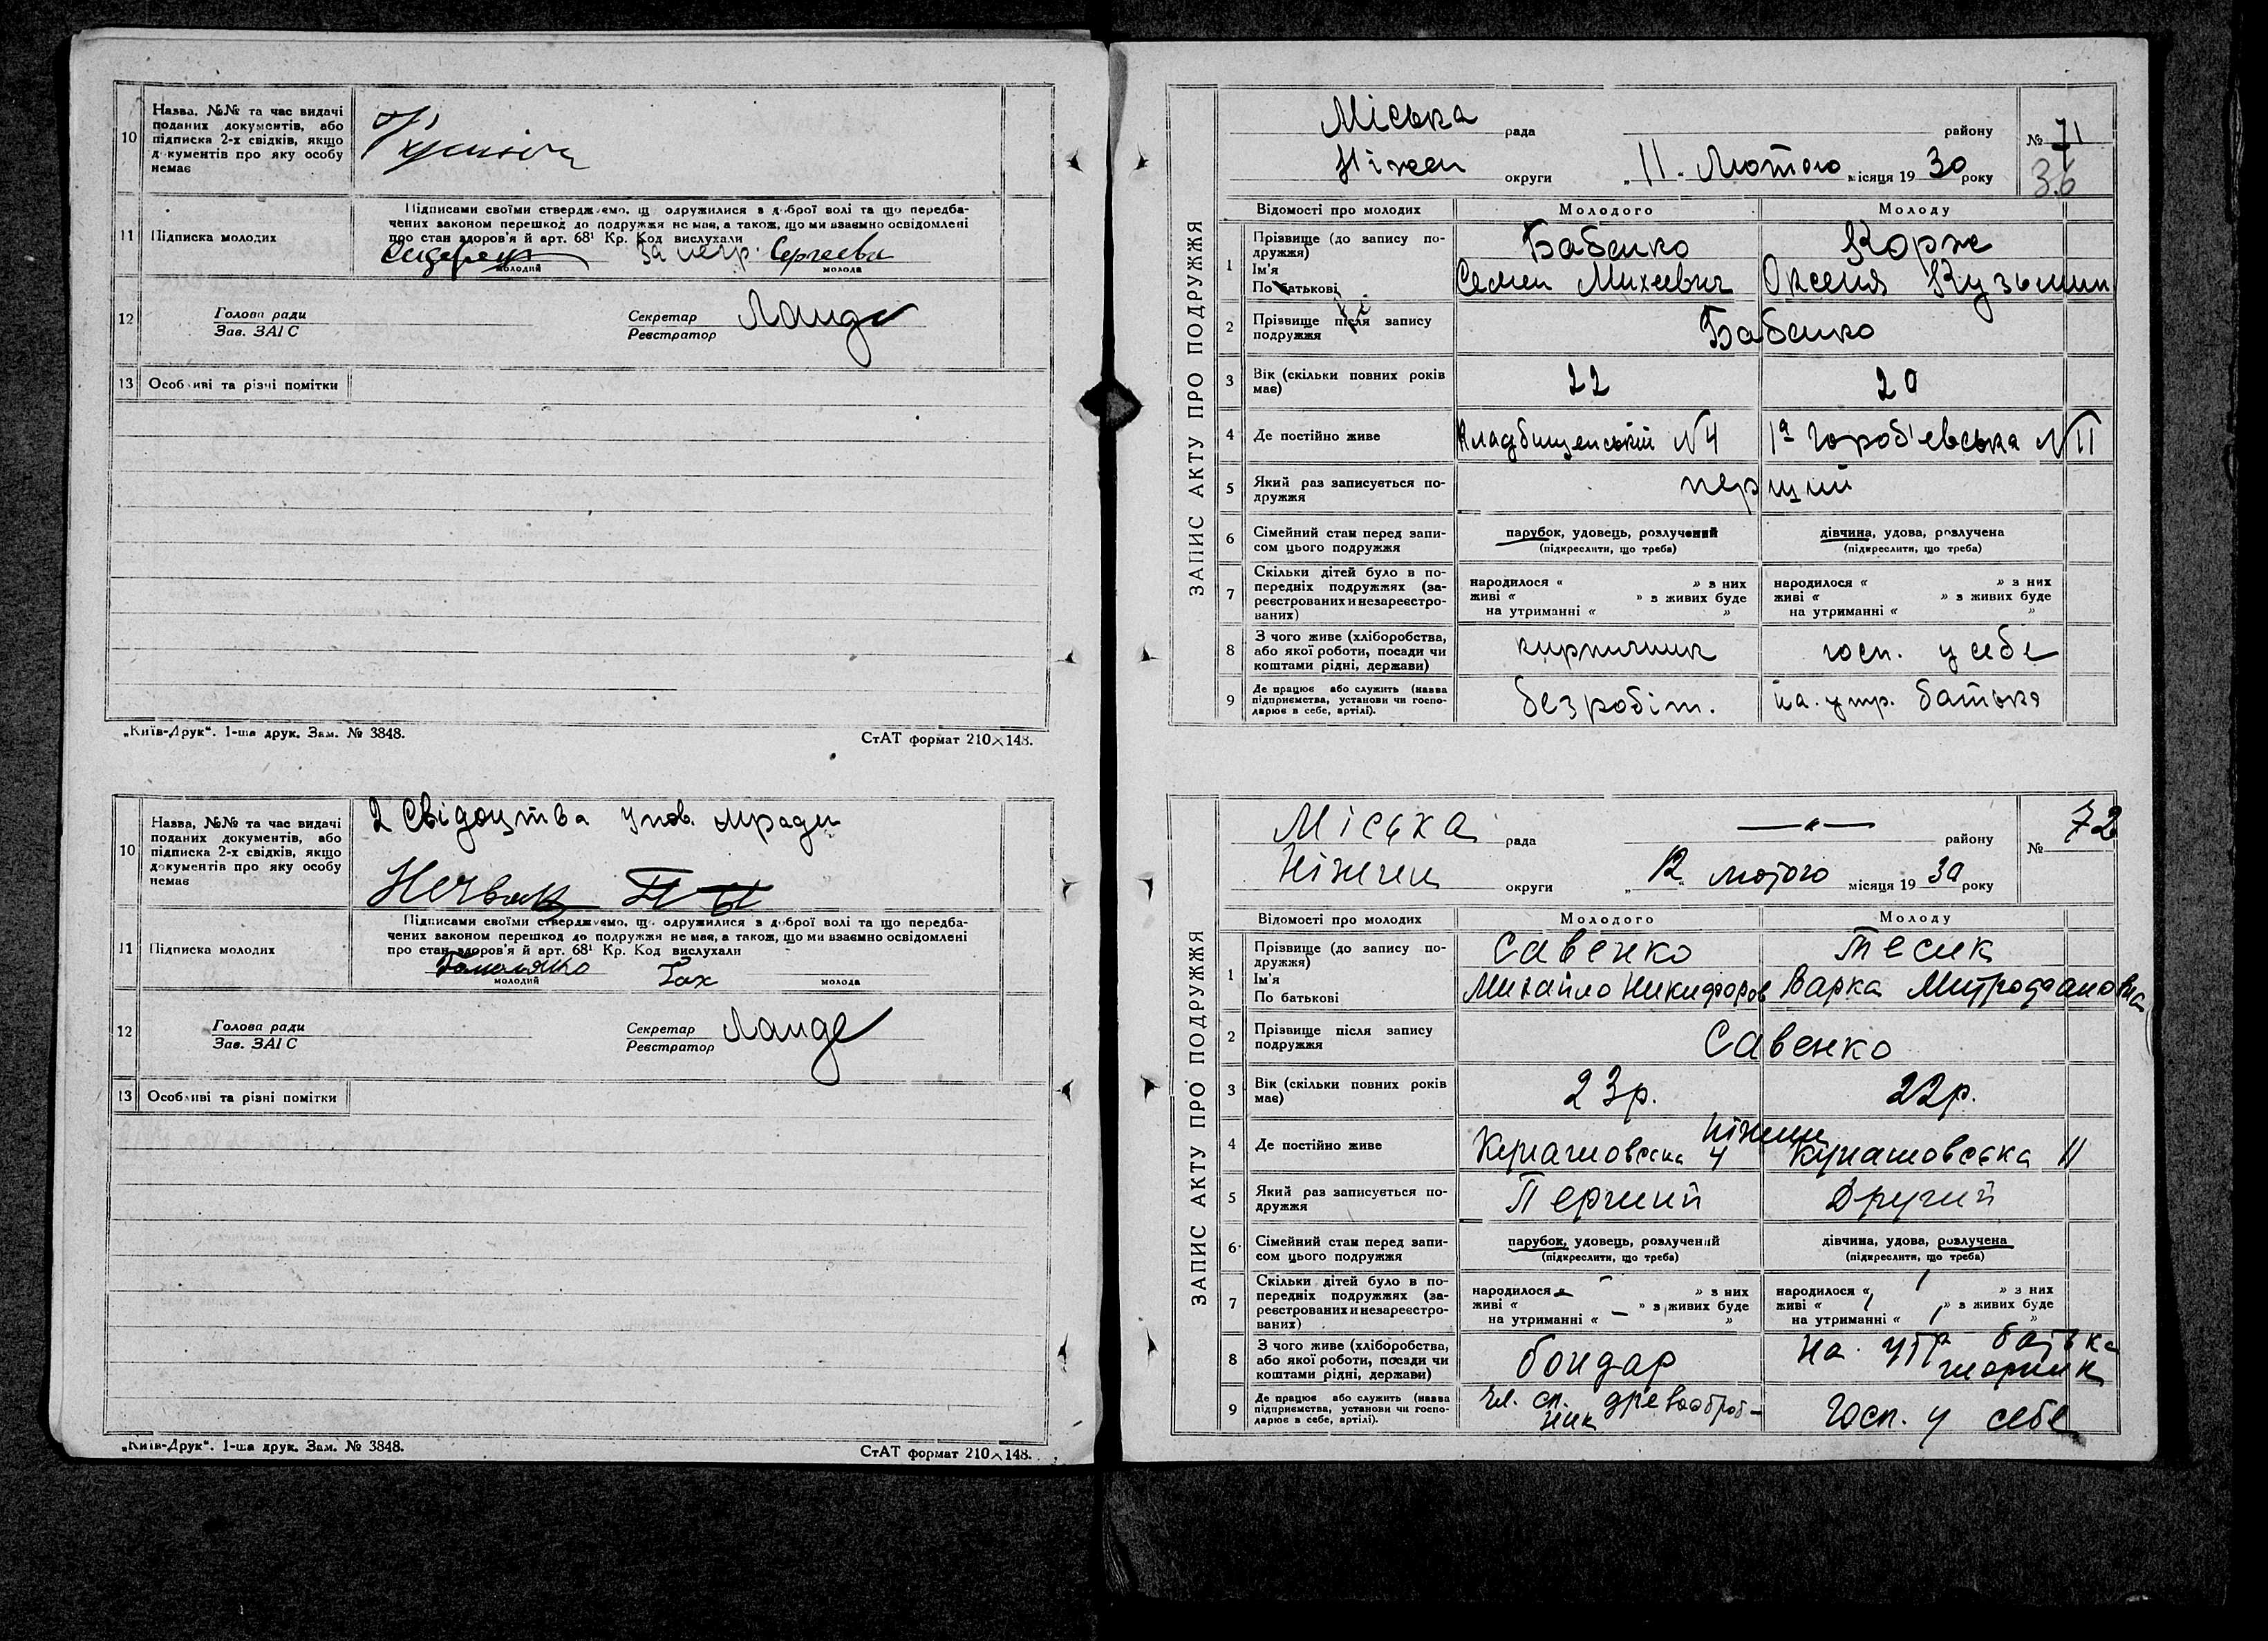 10
Назва, №№ та час видачі
поданих документів, або
підписка 2-х свідків, якщо
документів про яку особу
немає
11
Підписка молодих
Підписами своїми стверджуємо, що одружилися з доброї волі та що передба-
чених законом перешкод до подружжя не має, а також, що ми взаємно освідомлені
про стан здоров'я й арт. 68¹ Кр. Код вислухали
За негр. Сергеева
молодий
молода
12
Голова ради
Зав. ЗАГС
Секретар
Реєстратор
Ланде
13
Особливі та різні помітки
„Київ-Друк“. 1-ша друк. Зам. № 3848.
СтАТ формат 210×148.
10
Назва, №№ та час видачі
поданих документів, або
підписка 2-х свідків, якщо
документів про яку особу
немає
2 Свідоцтва упов. мради
11
Підписка молодих
Підписами своїми стверджуємо, що одружилися з доброї волі та що передба-
чених законом перешкод до подружжя не має, а також, що ми взаємно освідомлені
про стан здоров'я й арт. 68¹ Кр. Код вислухали
молодий
молода
12
Голова ради
Зав. ЗАГС
Секретар
Реєстратор
Ланде
13
Особливі та різні помітки
„Київ-Друк“. 1-ша друк. Зам. № 3848.
СтАТ формат 210×148.
ЗАПИС АКТУ ПРО ПОДРУЖЖЯ
Міська рада району
№ 71
Ніжен округи „11“ Лютого місяця 1930 року
36
Відомості про молодих Молодого Молоду
1
Прізвище (до запису по-
дружжя)
Бабенко Корж
Ім'я
По батькові
Семен Михеевич Оксеня Кузьмин
2
Прізвище після запису
подружжя
Бабенко
3
Вік (скільки повних років
має)
22 20
4
Де постійно живе
Кладбищенський N 4 1а Гороб'евська N 11
5
Який раз записується по-
дружжя
перший
6
Сімейний стан перед запи-
сом цього подружжя
парубок, удовець, розлучений
(підкреслити, що треба)
дівчина, удова, розлучена
(підкреслити, що треба)
7
Скільки дітей було в по-
передніх подружжях (за-
реєстрованих и незареєстро-
ваних)
народилося “ ” з них
живі “ ” з живих буде
на утриманні “ ”
народилося “ ” з них
живі “ ” з живих буде
на утриманні “ ”
8
З чого живе (хліборобства,
або якої роботи, посади чи
коштами рідні, держави)
кирпичник госп. у себе
9
Де працює або служить (назва
підприємства, установи чи госпо-
дарює в себе, артілі).
безробіт. на утр. батька
ЗАПИС АКТУ ПРО ПОДРУЖЖЯ
Міська рада —„— району
№ 72
Ніжен округи „12“ лютого місяця 1930 року
Відомості про молодих Молодого Молоду
1
Прізвище (до запису по-
дружжя)
Савенко Тесик
Ім'я
По батькові
Михайло Никифоров Варка Митрофановна
2
Прізвище після запису
подружжя
Савенко
3
Вік (скільки повних років
має)
23р. 22р.
4
Де постійно живе
Ніжин
Кунашовська 4 Кунашовська 11
5
Який раз записується по-
дружжя
Перший Другий
6
Сімейний стан перед запи-
сом цього подружжя
парубок, удовець, розлучений
(підкреслити, що треба)
дівчина, удова, розлучена
(підкреслити, що треба)
7
Скільки дітей було в по-
передніх подружжях (за-
реєстрованих и незареєстро-
ваних)
народилося “ – ” з них
живі “ ” з живих буде
на утриманні “ – ”
народилося “ / ” з них
живі “ / ” з живих буде
на утриманні “ / ”
8
З чого живе (хліборобства,
або якої роботи, посади чи
коштами рідні, держави)
бондар на утр батька
шорник
9
Де працює або служить (назва
підприємства, установи чи госпо-
дарює в себе, артілі).
чл. сп. древооброб-
ник
Госп. у себе